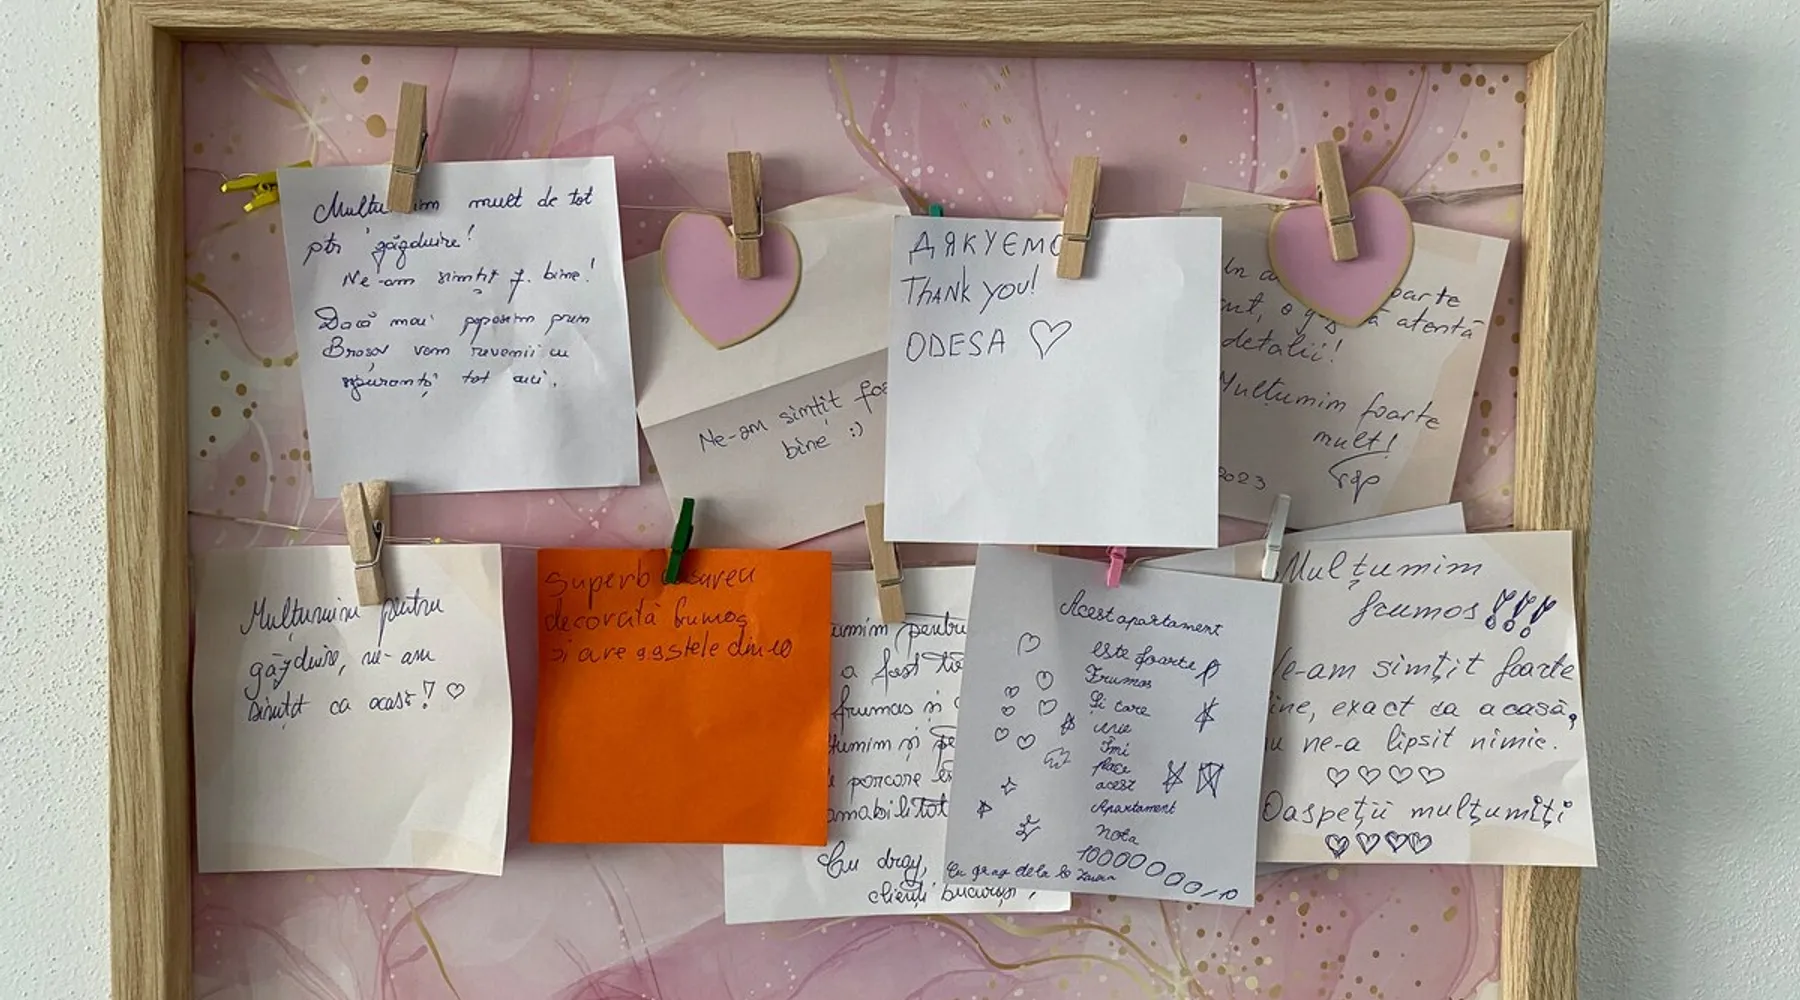 mult de tot
ptr găzduire!
Ne-am simțit f. bine!
Dacă mai poposim prin
Brașov vom revenii cu
siguranță tot aici.
Ne-am simțit
bine :)
ДЯКУЄМО
THANK YOU!
ODESA ♡
In
atentă
detalii!
Mulțumim foarte
mult!
2023
Mulțumim pentru
găzduire, ne-am
simțit ca acasă! ♡
Superb
decorată frumos
și are din 10
pentru
a fost
frumos și
și pe
amabilitat
Cu drag,
clienți bucuroși,
Acest apartament
este foarte
Frumos
Și care
Îmi
place
acest
Apartament
Nota
Cu drag de la
Mulțumim
frumos!!!
Ne-am simțit foarte
bine, exact ca acasă,
nu ne-a lipsit nimic.
♡♡♡♡
Oaspeții mulțumiți
♡♡♡♡